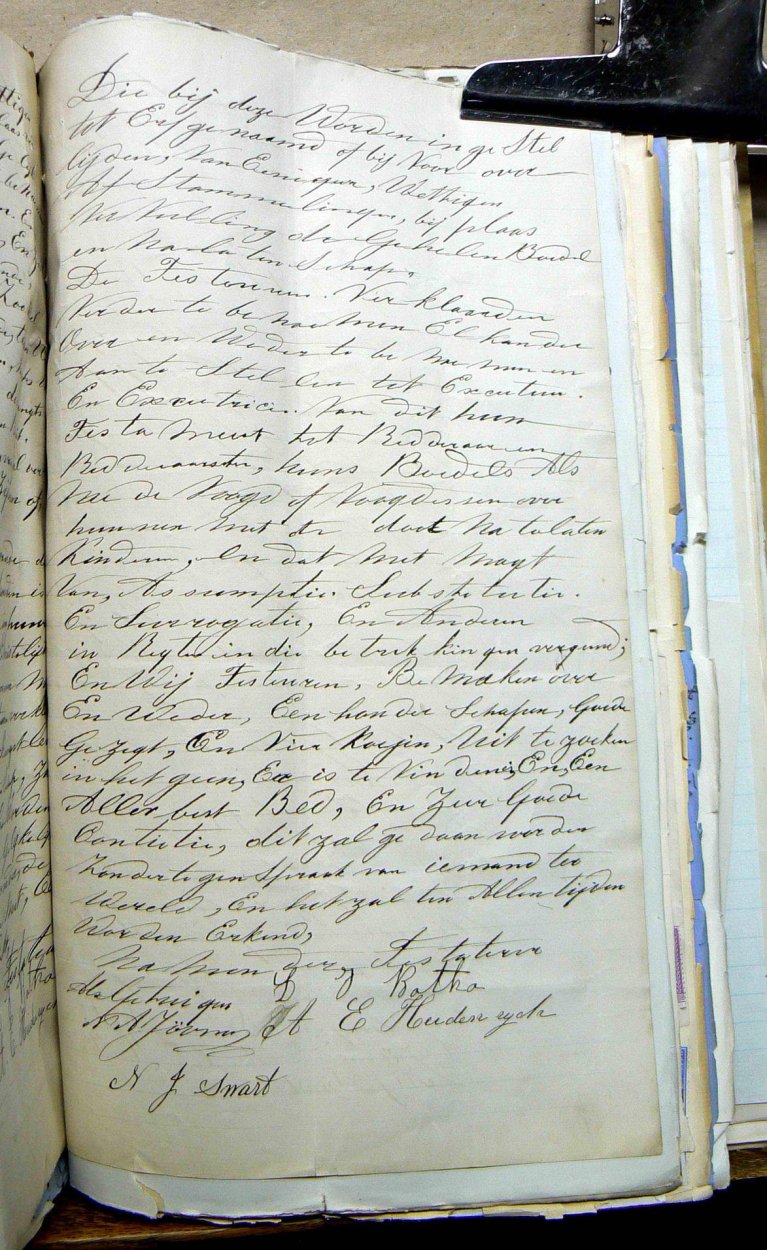 Die bij deze Worden in ge Stel
tot Erfgenaamd of bij Voor over
lijden, Van Eenigen, Wettigen
Af Stammelingen, bij plaas
Ver Vulling de Geheelen Boedel
en Naelaten Schap,
De Testeuren. Ver klaarden
Verder te benoemen El kander
Over en Weder te be noemen en
Aan te Stel len tot Executeur.
En Executrice. Van dit hun
Testament tot Redderaar en
Redderaarster, huns Boedels Als
me de Voogd of Voogdessen over
hunnen met de doot Na telaten
Kinderen, En dat Met Magt
Van, Assumptie. Substetutie.
En Surrogatie, En Anderen
in Regten in die be trek kin gen vergund;
En Wij Testeuren, Be Maken over
En Weder, Een hon der Schapen, Goede
Gezegt, En Vier Koejin, Uit te zoeken
in het geen, Er is te Vinden, En, Een
Aller best Bed, En Zeer Goede
Contietie, dit zal ge daan worden
Zonder te gen Spraak van iemand ter
Wereld, En het zal ten Allen tijden
Worden Erkend,
Namen der Testateren
Als Getuigen D J Botha
N A A E
N J Swart